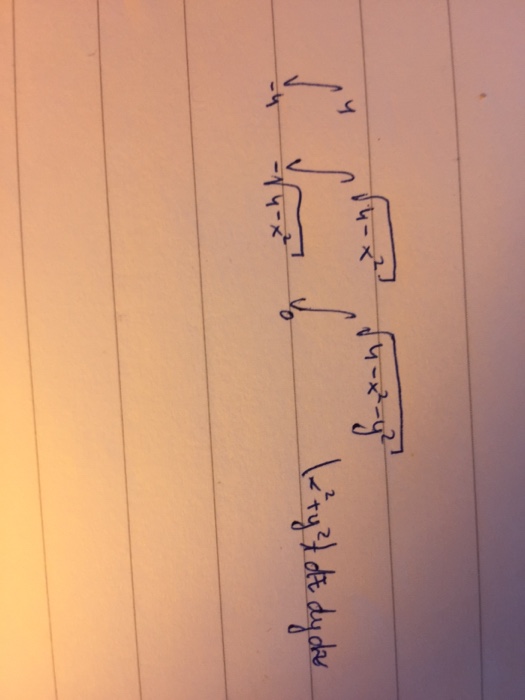 ∫_{-4}^{4} ∫_{-√(4-x²)}^{√(4-x²)} ∫_{0}^{√(4-x²-y²)} (x²+y²) dz dy dx